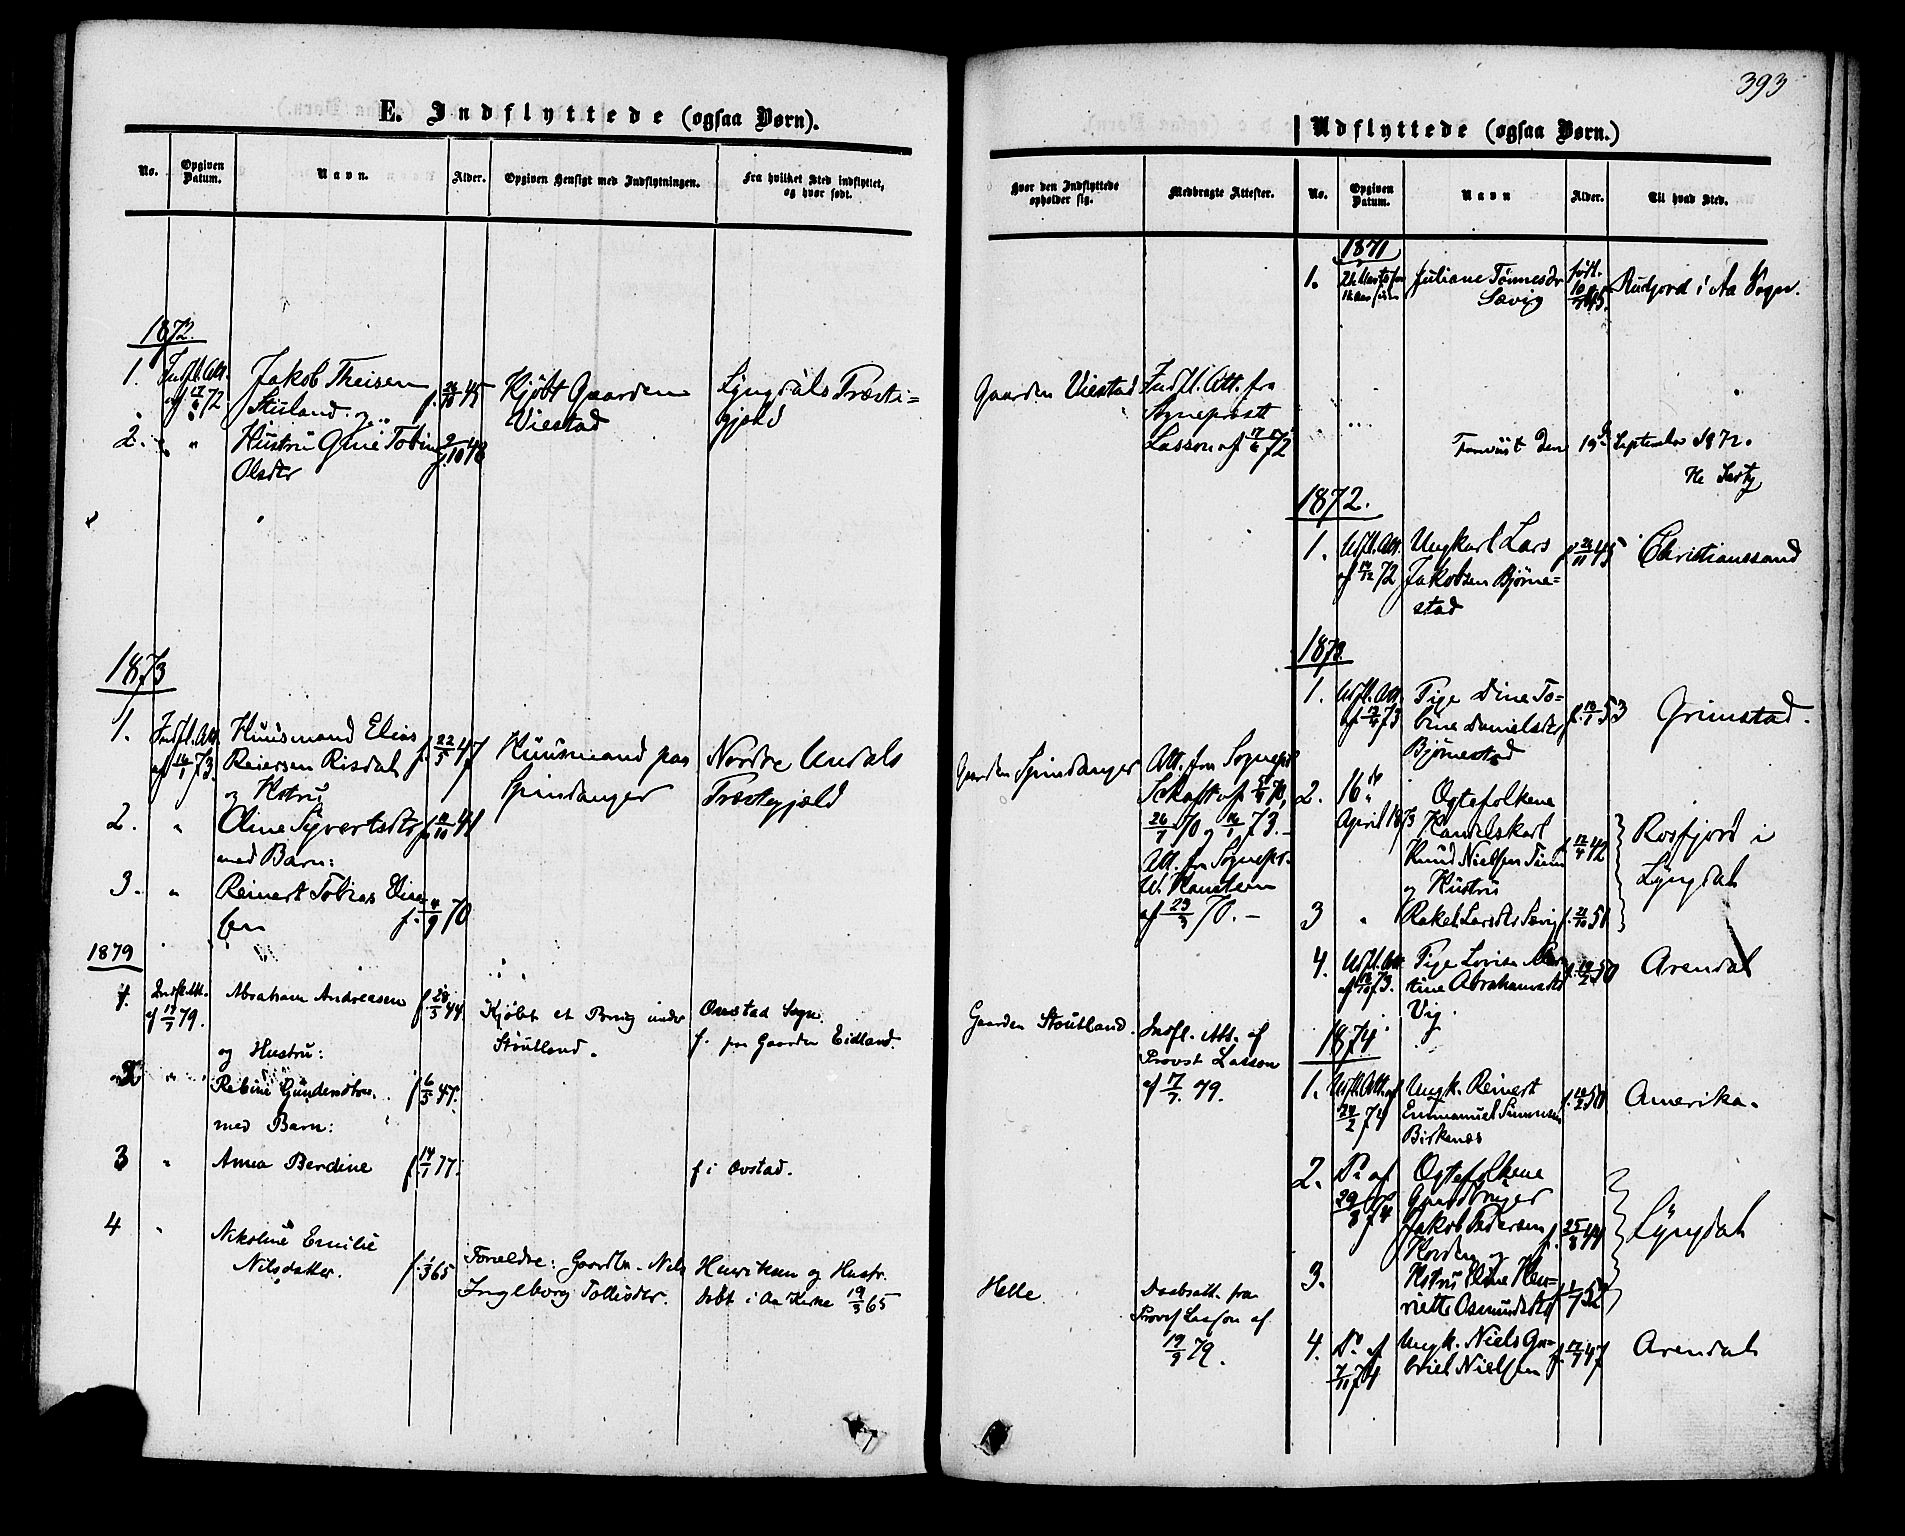 393
E. Indflyttede (ogsaa Børn).
No.
Opgiven Datum.
Navn.
Alder.
Opgiven Hensigt med Indflytningen.
Fra hvilket Sted indflyttet, og hvor født.
1872.
1. Indfl. Att. af 17/6 72
Jakob Theisen
Stusland og
f. 26/10 45
Kjøbt Gaarden
Viestad
Lyngdals Præste=
gjeld
2. " "
Hustru Gine Tobine
Olsdtr
1873
1. Indfl. Att. af 16/1 73.
Huusmand Elias
Reiersen Risdal
og Hstru
f. 22/5 47
Huusmand paa
Spindanger
Nordre Undals
Præstegjæld
2. "
Oline Syvertsdtr
med Barn:
3. "
Reinert Tobias Elias
sen
f. 4/9 70
1879
1. Indfl. Att. af 17/7 79.
Abraham Andreasen
og Hustru:
Kjøbt et Brug under
Stoutland.
Qvastad Sogn.
f. paa Gaarden Eidland.
2 "
Rebine Gundersdtr.
med Barn:
f. 6/5 47.
3 "
Anna Berdine
f. 14/1 77.
f i Qvstad.
4 "
Nikoline Emilie
Nilsdatter.
f. 1/3 65
Forældre: Gaardbr. Nils
Ingleborg Tollisdtr.
Henriksen og Hustr.
døbt i Aa Kirke 19/3 65
Hvor den Indflyttede opholder sig.
Medbragte Attester.
Gaarden Viestad
Indfl. Att. fra
Sogneprest
Lasson af 17/6 72
Gaarden Spindanger
Att. fra Sognepr
Schaft af 5/4 70,
26/7 70 og 16/1 73.
Att. fra Sognepr.
W. Hanstein
af 23/3 70.
Gaarden Stoutland.
Indfl. Att. af
Provst Lasson
af 17/7 79.
Helle.
Daabsatt. fra
Provst Lasson af
19/9 79.
Udflyttede (ogsaa Børn.)
No.
Opgiven Datum.
Navn
Alder.
Til hvad Sted.
1871
1.
Juliane Tønnesdr
Sævig
født.
Rudjord i Aa Sogn.
Fremvist den 19de September 1872.
1872.
1. Udfl. Att. af 14/12 72
Ungkarl Lars
Jakobsen Bjørne=
stad
f. 21/11 45
Christianssand
1873.
1. Udfl. Att. af 17/4 73
Pige Dine To=
bine Danielsdtr
Bjørnestad
f. 13/1 53
Grimstad.
2. 16de April 1873
Ægtefolkene
Handelskarl
Knud Nielsen
og Hustru
f. 12/4 42
Rosfjord i
Lyngdal
3 "
Rakel Larsdtr Sævig
4. Udfl. Att. af 18/10 73.
Pige Lovise
tine Abrahamsdtr
Vig.
Arendal
1874
1. Udfl. Att. af 24/2 74
Ungk. Reinert
Emmanuel Simonsen
Birkenæs
Amerika.
2. Do af 29/8 74
Ægtefolkene
Gaardbruger
Jakob Pedersen
og
f. 25/8 44
Lyngdal
3.
Hstru Eline Hen=
riette Osmundsdtr
4. Do af 7/11 74
Ungk. Niels Ga=
briel Nielsen
f. 12/7 47
Arendal